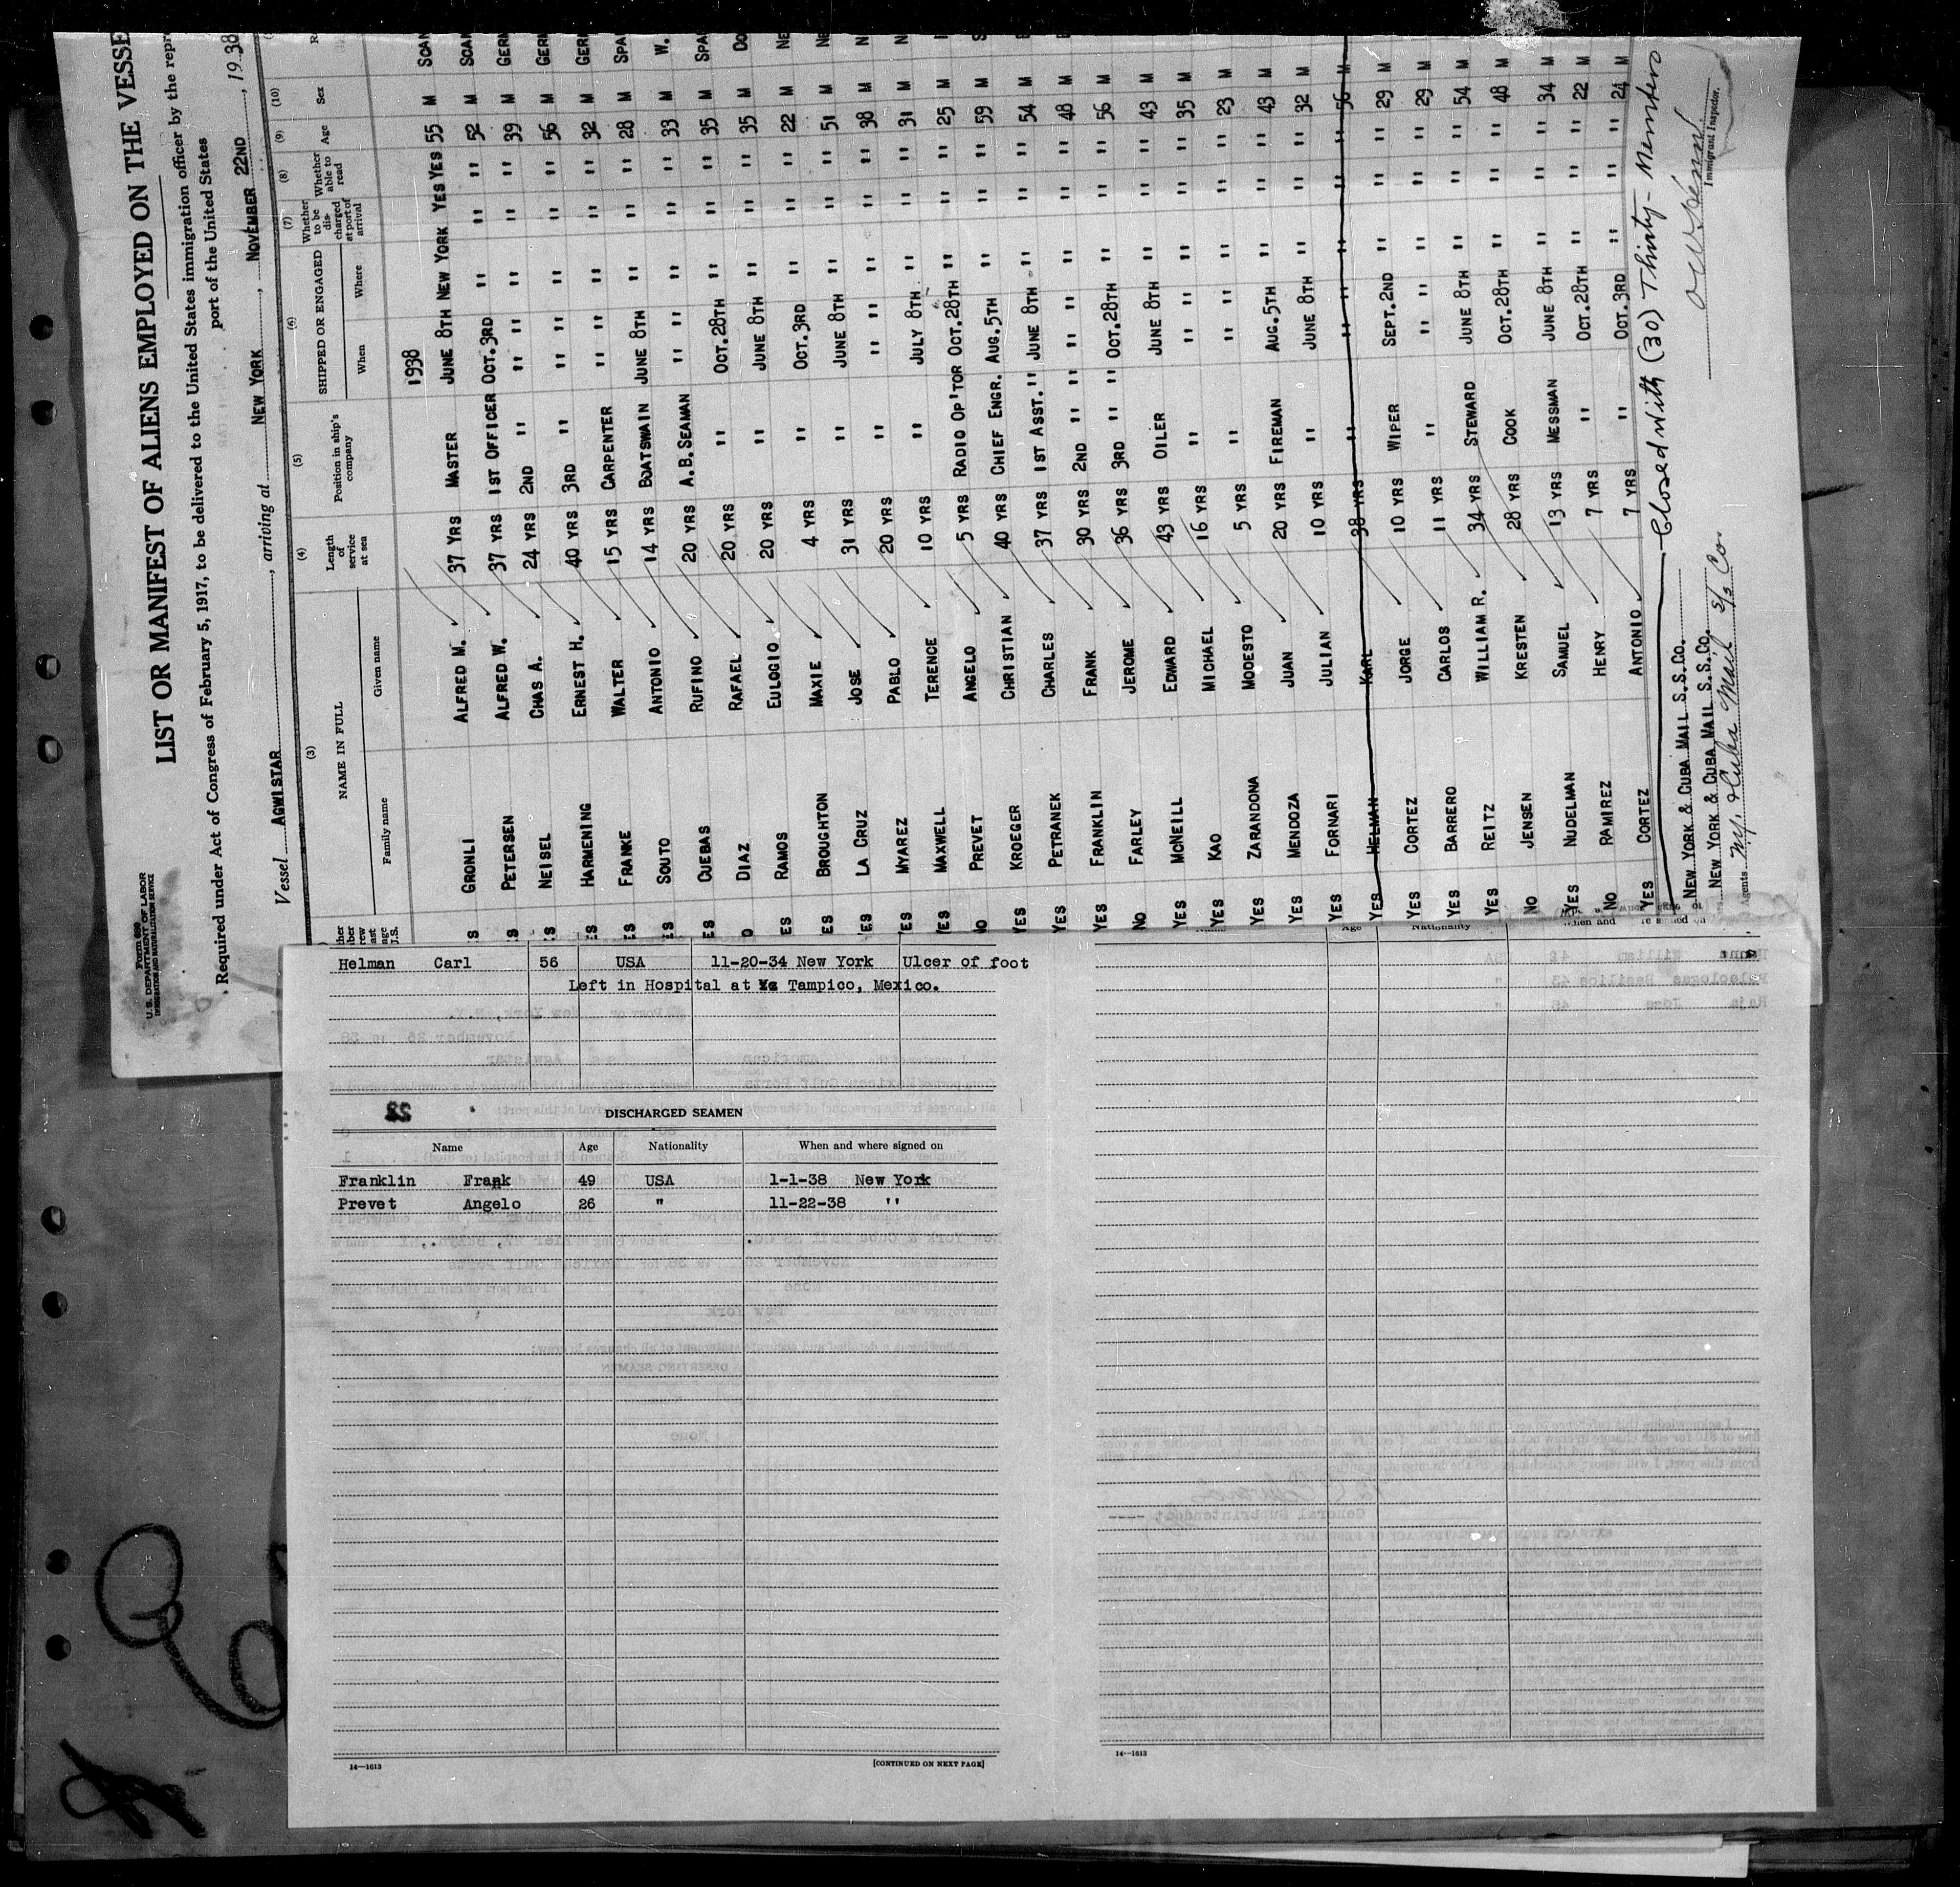 Form 689
U.S. DEPARTMENT OF LABOR
IMMIGRATION AND NATURALIZATION SERVICE
LIST OR MANIFEST OF ALIENS EMPLOYED ON THE VESSE
Required under Act of Congress of February 5, 1917, to be delivered to the United States immigration officer by the repr
port of the United States
Vessel AGWISTAR, arriving at NEW YORK, NOVEMBER 22ND, 1938
(3) (4) (5) (6) (7) (8) (9) (10)
NAME IN FULL Length of service at sea Position in ship's company SHIPPED OR ENGAGED Whether to be discharged at port of arrival Whether able to read Age Sex
Family name Given name When Where
1938
GRONLI ALFRED M. 37 YRS MASTER JUNE 8TH NEW YORK YES YES 55 M SCAN
PETERSEN ALFRED W. 37 YRS 1ST OFFICER OCT.3RD " " " 52 M SCAN
NEISEL CHAS A. 24 YRS 2ND " " " " " 39 M GERM
HARMENING ERNEST H. 40 YRS 3RD " " " " " " 56 M GERM
FRANKE WALTER 15 YRS CARPENTER " " " " " 32 M GERM
SOUTO ANTONIO 14 YRS BOATSWAIN JUNE 8TH " " " 28 M SPA
CUEBAS RUFINO 20 YRS A.B.SEAMAN " " " " " 33 M W.
YES DIAZ RAFAEL 20 YRS " OCT.28TH " " " 35 M SPA
RAMOS EULOGIO 20 YRS " JUNE 8TH " " " 35 M CO
BROUGHTON MAXIE 4 YRS " OCT.3RD " " " 22 M NE
LA CRUZ JOSE 31 YRS " JUNE 8TH " " " 51 M NE
MYAREZ PABLO 20 YRS " " " " " " 38 M N
YES MAXWELL TERENCE 10 YRS " JULY 8TH " " " 31 M N
NO PREVET ANGELO 5 YRS RADIO OP'TOR OCT.28TH " " " 25 M
YES KROEGER CHRISTIAN 40 YRS CHIEF ENGR. AUG.5TH " " " 59 M S
YES PETRANEK CHARLES 37 YRS 1ST ASST. " JUNE 8TH " " " 54 M
YES FRANKLIN FRANK 30 YRS 2ND " " " " " " " 48 M
NO FARLEY JEROME 36 YRS 3RD " " OCT.28TH " " " 56 M
YES MCNEILL EDWARD 43 YRS OILER JUNE 8TH " " " 43 M
YES KAO MICHAEL 16 YRS " " " " " 35 M
YES ZARANDONA MODESTO 5 YRS " " " " " 23 M
YES MENDOZA JUAN 20 YRS FIREMAN AUG.5TH " " " 43 M
YES FORNARI JULIAN 10 YRS " JUNE 8TH " " " 32 M
YES HELMAN KARL 38 YRS " " " " " 56 M
YES CORTEZ JORGE 10 YRS WIPER SEPT.2ND " " " 29 M
YES BARRERO CARLOS 11 YRS " " " " " 29 M
YES REITZ WILLIAM R. 34 YRS STEWARD JUNE 8TH " " " 54 M
NO JENSEN KRESTEN 28 YRS COOK OCT.28TH " " " 48 M
YES NUDELMAN SAMUEL 13 YRS MESSMAN JUNE 8TH " " " 34 M
NO RAMIREZ HENRY 7 YRS " OCT.28TH " " " 22 M
YES CORTEZ ANTONIO 7 YRS " OCT.3RD " " " 24 M
Closed with (30) Thirty - Members
NEW YORK & CUBA MAIL S.S.CO.
NEW YORK & CUBA MAIL S.S.CO.
Agents N.Y. & Cuba Mail S/S Co.
Immigrant Inspector.
Helman Carl 56 USA 11-20-34 New York Ulcer of foot
Left in Hospital at Tampico, Mexico.
DISCHARGED SEAMEN
Name Age Nationality When and where signed on
Franklin Frank 49 USA 1-1-38 New York
Prevet Angelo 26 " 11-22-38 "
14—1613
[CONTINUED ON NEXT PAGE]
Age Nationality When and
14—1613